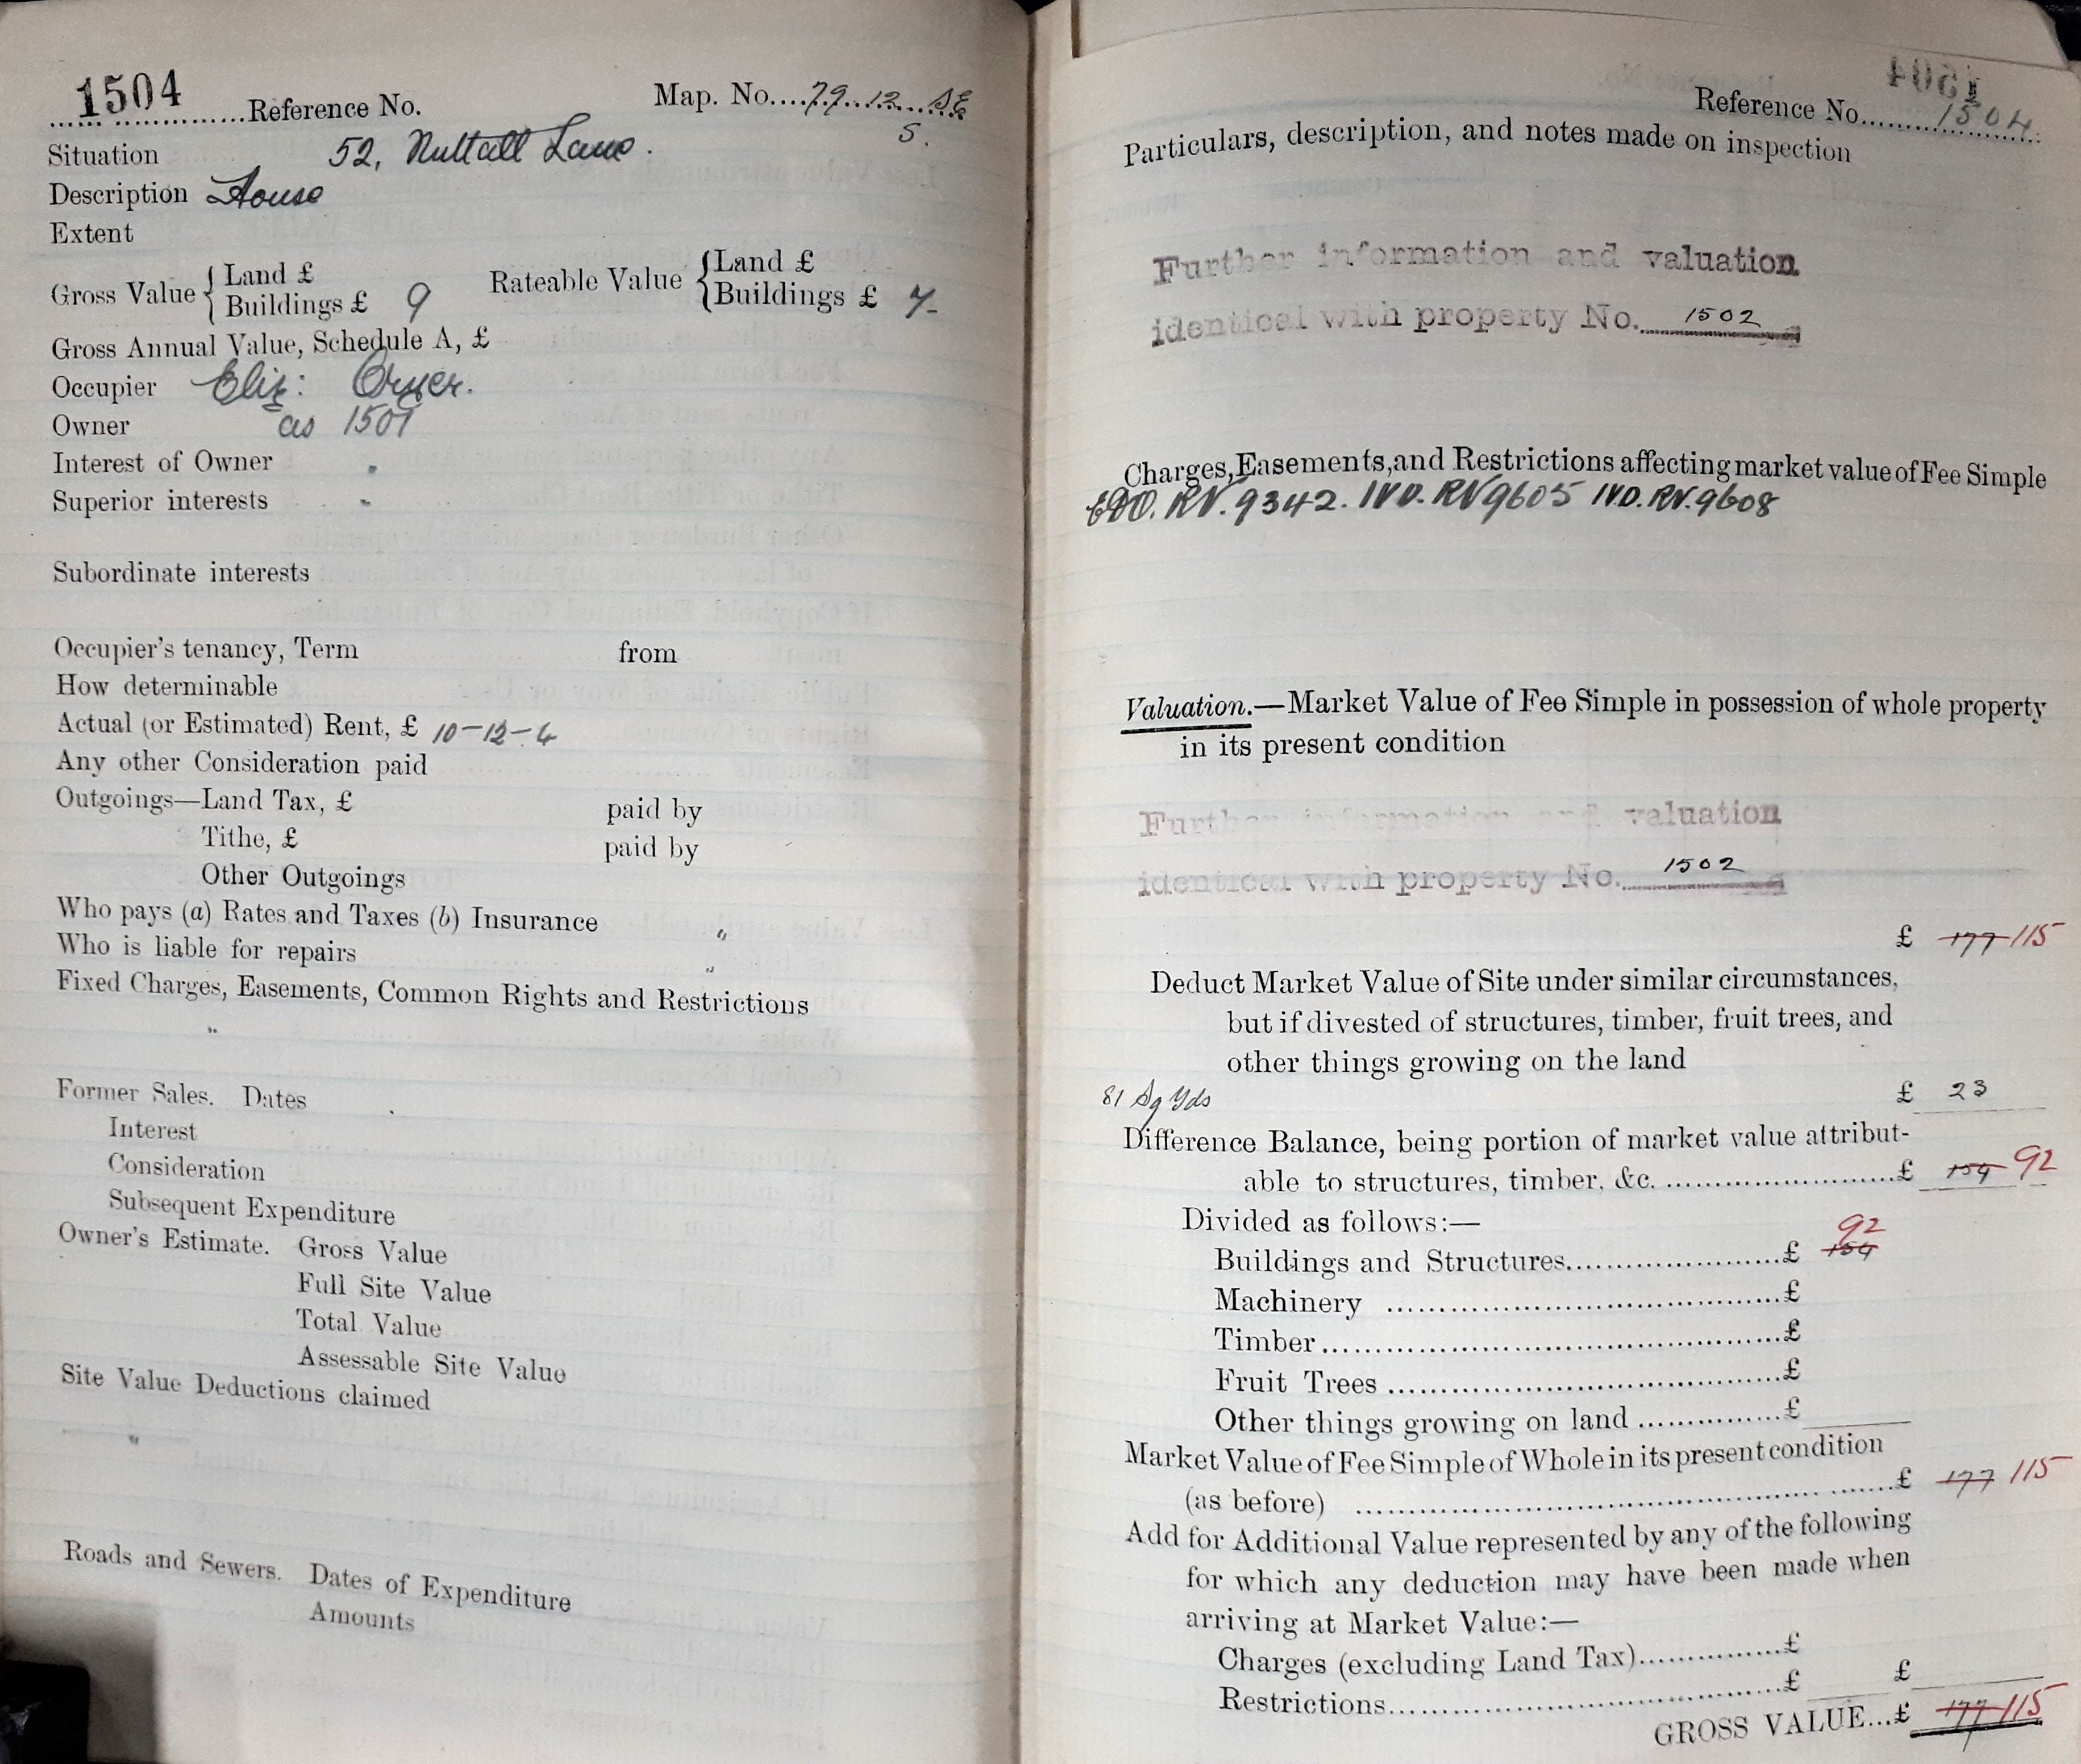 1504 Reference No. Map. No. 79. 12. SE
5.
Situation 52, Nuttall Lane.
Description House
Extent
Gross Value { Land £
Buildings £ 9
Rateable Value { Land £
Buildings £ 7-
Gross Annual Value, Schedule A, £
Occupier Eliz:
Owner as 1501
Interest of Owner
Superior interests
Subordinate interests
Occupier's tenancy, Term from
How determinable
Actual (or Estimated) Rent, £ 10-12-4
Any other Consideration paid
Outgoings—Land Tax, £ paid by
Tithe, £ paid by
Other Outgoings
Who pays (a) Rates and Taxes (b) Insurance "
Who is liable for repairs "
Fixed Charges, Easements, Common Rights and Restrictions
"
Former Sales. Dates
Interest
Consideration
Subsequent Expenditure
Owner's Estimate. Gross Value
Full Site Value
Total Value
Assessable Site Value
Site Value Deductions claimed
"
Roads and Sewers. Dates of Expenditure
Amounts
Reference No. 1504
Particulars, description, and notes made on inspection
Further information and valuation
identical with property No. 1502
Charges, Easements, and Restrictions affecting market value of Fee Simple
RV. 9342. IVD. RV 9605 IVD. RV. 9608
Valuation.—Market Value of Fee Simple in possession of whole property
in its present condition
Further information and valuation
identical with property No. 1502
£ 177 115
Deduct Market Value of Site under similar circumstances,
but if divested of structures, timber, fruit trees, and
other things growing on the land
81 Sq Yds £ 23
Difference Balance, being portion of market value attribut-
able to structures, timber, &c. £ 154 92
Divided as follows:—
92
Buildings and Structures £ 154
Machinery £
Timber £
Fruit Trees £
Other things growing on land £
Market Value of Fee Simple of Whole in its present condition
(as before) £ 177 115
Add for Additional Value represented by any of the following
for which any deduction may have been made when
arriving at Market Value:—
Charges (excluding Land Tax) £
Restrictions £ £
GROSS VALUE...£ 177 115